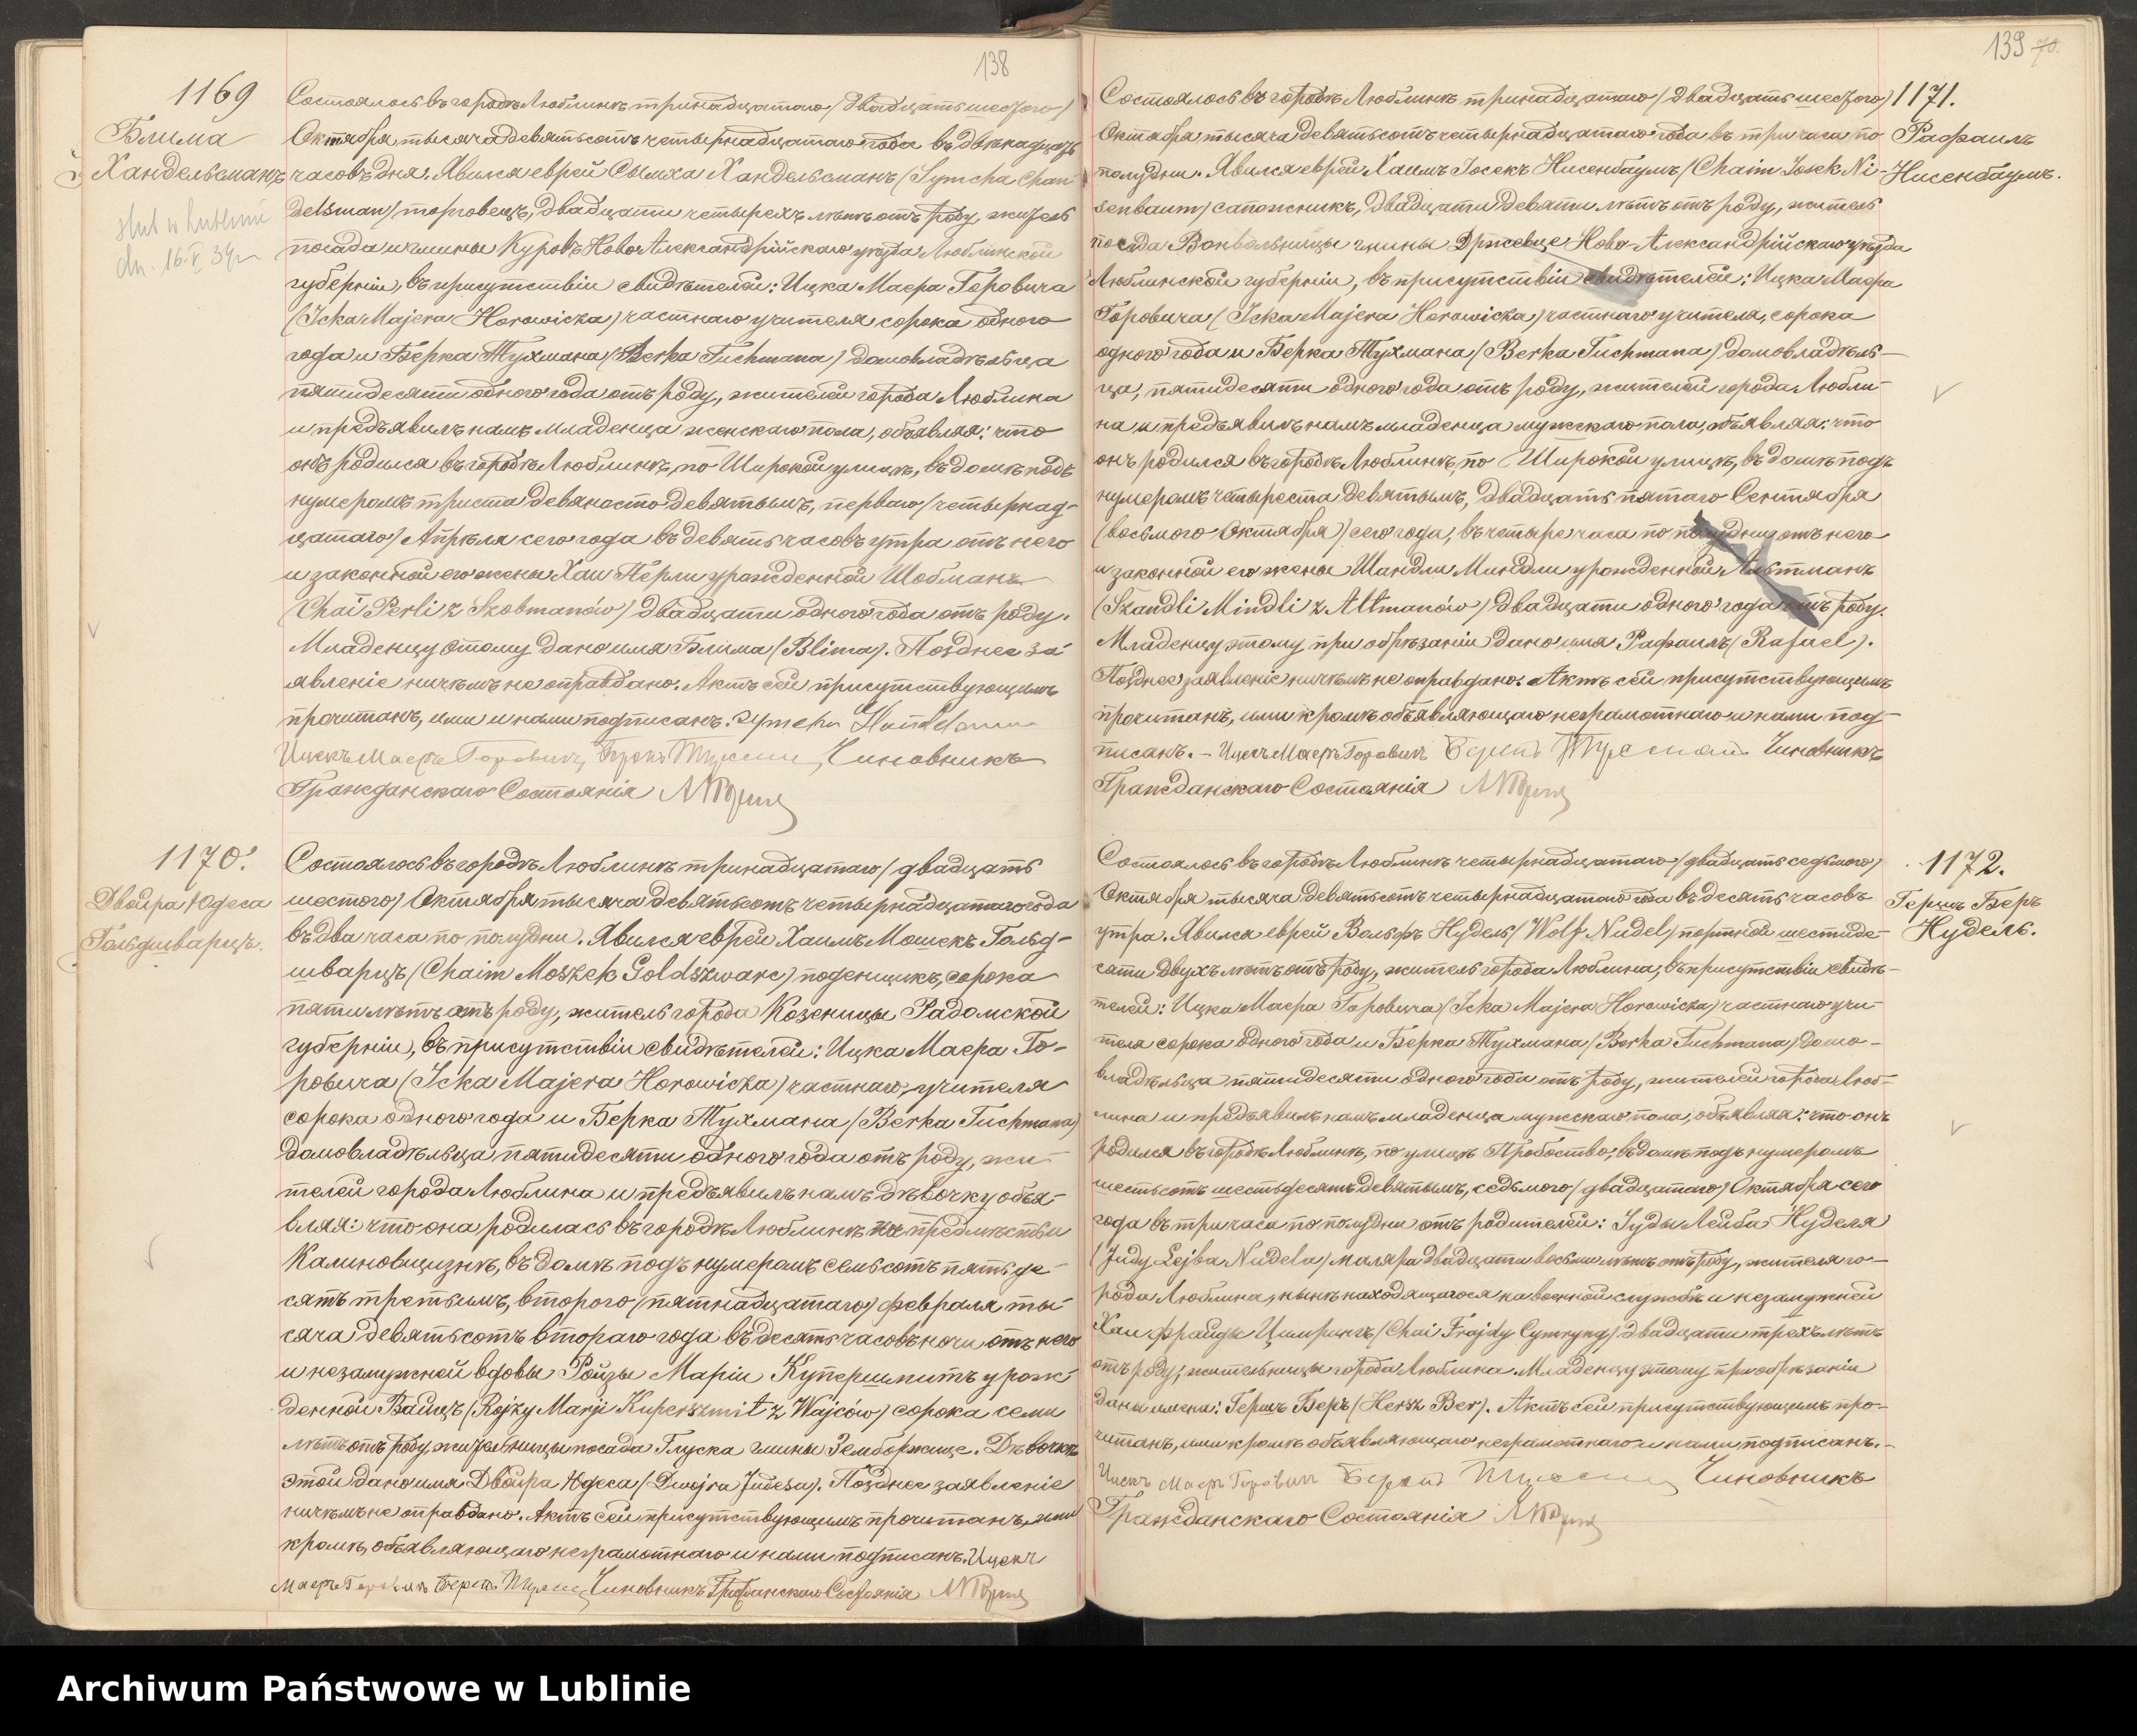 138
1169
Блима
Хандельсманъ
Slub w Lublinie
dn. 16.V.34 r
Состоялось въ городѣ Люблинѣ тринадцатаго /двадцать шестого/
Октября тысяча девятьсотъ четырнадцатаго года въ двѣнадцать
часовъ дня. Явился еврей Сымха Хандельсманъ (Symcha Chan-
delsman) торговецъ, двадцати четырехъ лѣтъ отъ роду, житель
посада и гмины Куровъ Ново Александрійскаго уѣзда Люблинской
губерніи, въ присутствіи свидѣтелей: Ицка Маера Горовича
(Icka Majera Horowicza) частнаго учителя сорока одного
года и Берка Тухмана (Berka Tuchmana) домовладѣльца
пятидесяти одного года отъ роду, жителей города Люблина
и предъявилъ намъ младенца женскаго пола, объявляя: что
онъ родился въ городѣ Люблинѣ, по Широкой улицѣ, въ домѣ подъ
нумеромъ триста девяносто девятымъ, перваго /четырнад-
цатаго/ Апрѣля сего года въ девять часовъ утра отъ него
и законной его жены Хаи Перли урожденной Шобманъ
(Chai Perli z Szobmanów) двадцати одного года отъ роду.
Младенцу этому дано имя Блима (Blima). Позднее за-
явленіе ничѣмъ не оправдано. Актъ сей присутствующимъ
прочитанъ, ими и нами подписанъ.
Ицекъ Маеръ Горовичъ, Чиновникъ
Гражданскаго Состоянія
1170.
Двойра Юдеса
Гольдшварцъ.
Состоялось въ городѣ Люблинѣ тринадцатаго /двадцать
шестого/ Октября тысяча девятьсотъ четырнадцатаго года
въ два часа по полудни. Явился еврей Хаимъ Мошекъ Гольд-
шварцъ (Chaim Moszek Goldszwarc) поденщикъ, сорока
пяти лѣтъ отъ роду, житель города Козеницы Радомской
губерніи, въ присутствіи свидѣтелей: Ицка Маера Го-
ровича (Icka Majera Horowicza) частнаго учителя
сорока одного года и Берка Тухмана (Berka Tuchmana)
домовладѣльца пятидесяти одного года отъ роду, жи-
телей города Люблина и предъявилъ намъ дѣвочку объя-
вляя: что она родилась въ городѣ Люблинѣ на предмѣстьи
Калиновщизнѣ, въ домѣ подъ нумеромъ семьсотъ пятьде-
сятъ третьимъ, второго /пятнадцатаго/ февраля ты-
сяча девятьсотъ второго года въ десять часовъ ночи отъ него
и незамужней вдовы Ройзы Маріи Купершмитъ урож-
денной Вайцъ (Rojzy Marji Kuperszmit z Wajców) сорока семи
лѣтъ отъ роду, жительницы посада Глуска гмины Земборжице. Дѣвочкѣ
этой дано имя Двойра Юдеса (Dwojra Judesa). Позднее заявленіе
ничѣмъ не оправдано. Актъ сей присутствующимъ прочитанъ, ими
кромѣ объявляющаго неграмотнаго и нами подписанъ. Ицекъ
Маеръ Горовичъ Чиновникъ Гражданскаго Состоянія
139 70.
1171.
Рафаилъ
Нисенбаумъ.
Состоялось въ городѣ Люблинѣ тринадцатаго /двадцать шестого/
Октября тысяча девятьсотъ четырнадцатаго года въ три часа по
полудни. Явился еврей Хаимъ Іосекъ Нисенбаумъ (Chaim Josek Ni-
senbaum) сапожникъ, двадцати девяти лѣтъ отъ роду, житель
посада Вонвольницы гмины Држевце Ново-Александрійскаго уѣзда
Люблинской губерніи, въ присутствіи свидѣтелей: Ицка Маера
Горовича (Icka Majera Horowicza) частнаго учителя, сорока
одного года и Берка Тухмана (Berka Tuchmana) домовладѣль-
ца, пятидесяти одного года отъ роду, жителей города Любли-
на и предъявилъ намъ младенца мужскаго пола, объявляя: что
онъ родился въ городѣ Люблинѣ, по Широкой улицѣ, въ домѣ подъ
нумеромъ четыреста девятымъ, двадцать пятаго Сентября
(восьмого Октября) сего года, въ четыре часа по полудни отъ него
и законной его жены Шандли Миндли урожденной Альтманъ
(Szandli Mindli z Altmanów) двадцати одного года отъ роду.
Младенцу этому при обрѣзаніи дано имя Рафаилъ (Rafael).
Позднее заявленіе ничѣмъ не оправдано. Актъ сей присутствующимъ
прочитанъ, ими кромѣ объявляющаго неграмотнаго и нами под-
писанъ. - Ицекъ Маеръ Горовичъ Чиновникъ
Гражданскаго Состоянія
1172.
Гершъ Беръ
Нудель.
Состоялось въ городѣ Люблинѣ четырнадцатаго /двадцать седьмого/
Октября тысяча девятьсотъ четырнадцатаго года въ десять часовъ
утра. Явился еврей Вольфъ Нудель (Wolf Nudel) портной шестиде-
сяти двухъ лѣтъ отъ роду, житель города Люблина, въ присутствіи свидѣ-
телей: Ицка Маера Горовича (Icka Majera Horowicza) частнаго учи-
теля сорока одного года и Берка Тухмана (Berka Tuchmana) домо-
владѣльца пятидесяти одного года отъ роду, жителей города Люб-
лина и предъявилъ намъ младенца мужскаго пола, объявляя: что онъ
родился въ городѣ Люблинѣ, по улицѣ Пробоство, въ домѣ подъ нумеромъ
шестьсотъ шестьдесятъ девятымъ, седьмого /двадцатаго/ Октября сего
года въ три часа по полудни отъ родителей: Іуды Лейба Нуделя
(Judy Lejba Nudela) маляра двадцати восьми лѣтъ отъ роду, жителя го-
рода Люблина, нынѣ находящагося на военной службѣ и незамужней
Хаи Фрайды Цимрингъ (Chai Frajdy Cymryng) двадцати трехъ лѣтъ
отъ роду, жительницы города Люблина. Младенцу этому при обрѣзаніи
даны имена: Гершъ Беръ (Hersz Ber). Актъ сей присутствующимъ про-
читанъ, ими кромѣ объявляющаго неграмотнаго и нами подписанъ. -
Ицекъ Маеръ Горовичъ Чиновникъ
Гражданскаго Состоянія
Archiwum Państwowe w Lublinie